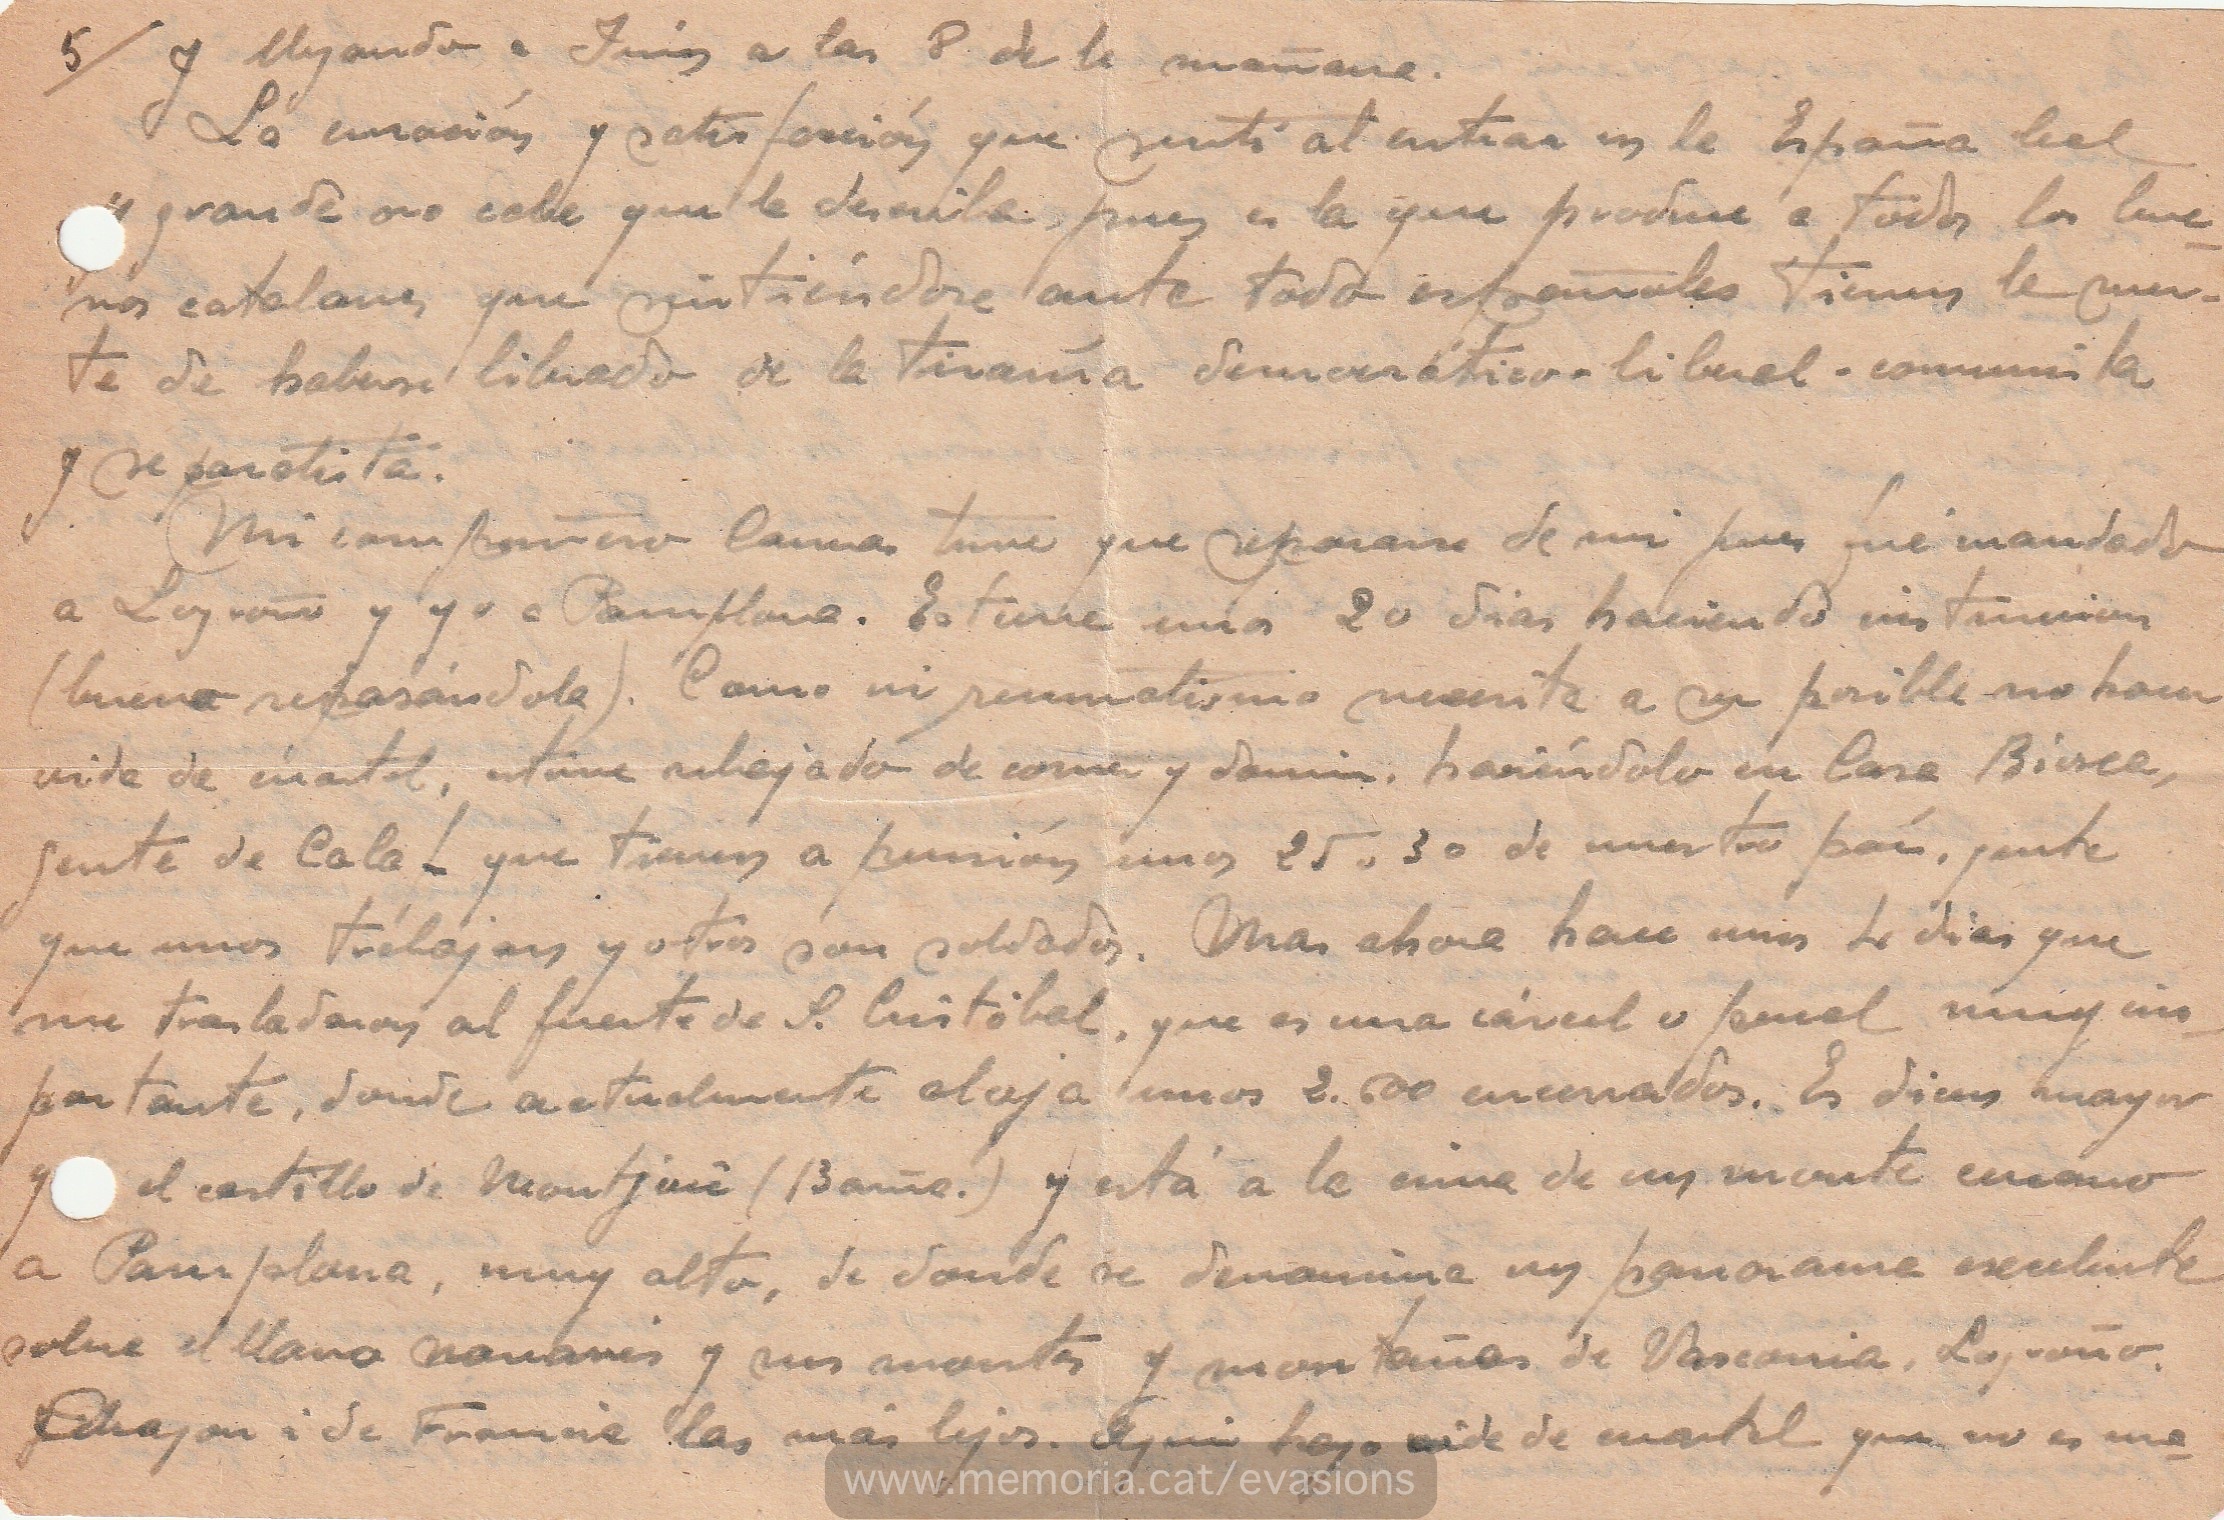 5/ y llegando a Irún a las 8 de la mañana.
La emoción y satisfacción que sentí al entrar en la España leal
y grande no cabe que la describa, pues es la que produce a todos los bue-
nos catalanes que sintiéndose ante todo españoles tienen la suer-
te de haberse librado de la tiranía democrático-liberal-comunista
y separatista.
Mi compañero Comas tuvo que separarse de mi pues fué mandado
a Logroño y yo a Pamplona. Estuve unos 20 dias haciendo instruccion
(bueno repasándola). Como mi reumatismo necesita a ser posible no hacer
vida de cuartel, estuve rebajado de comer y dormir, haciéndolo en Casa Biosca,
gente de Cala! que tienen a pensión unos 25 o 30 de nuestro país, gente
que unos trabajan y otros son soldados. Mas ahora hace unos 4 dias que
me trasladaron al fuerte de S. Cristóbal, que es una cárcel o penal muy im-
portante, donde actualmente aloja unos 2.500 encerrados. Es dicen mayor
q el castillo de Montjuic (Barña.) y está a la cima de un monte cercano
a Pamplona, muy alto, de donde se denomina un panorama excelente
sobre el llano navarrés y sus montes y montañas de Vasconia, Logroño,
Aragon i de Francia las más lejos. Aqui hago vida de cuartel que no es ma-
www.memoria.cat/evasions